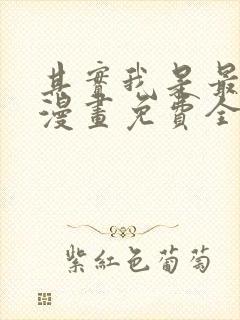 其實我是最
漫畫免費全
紫紅色葡萄